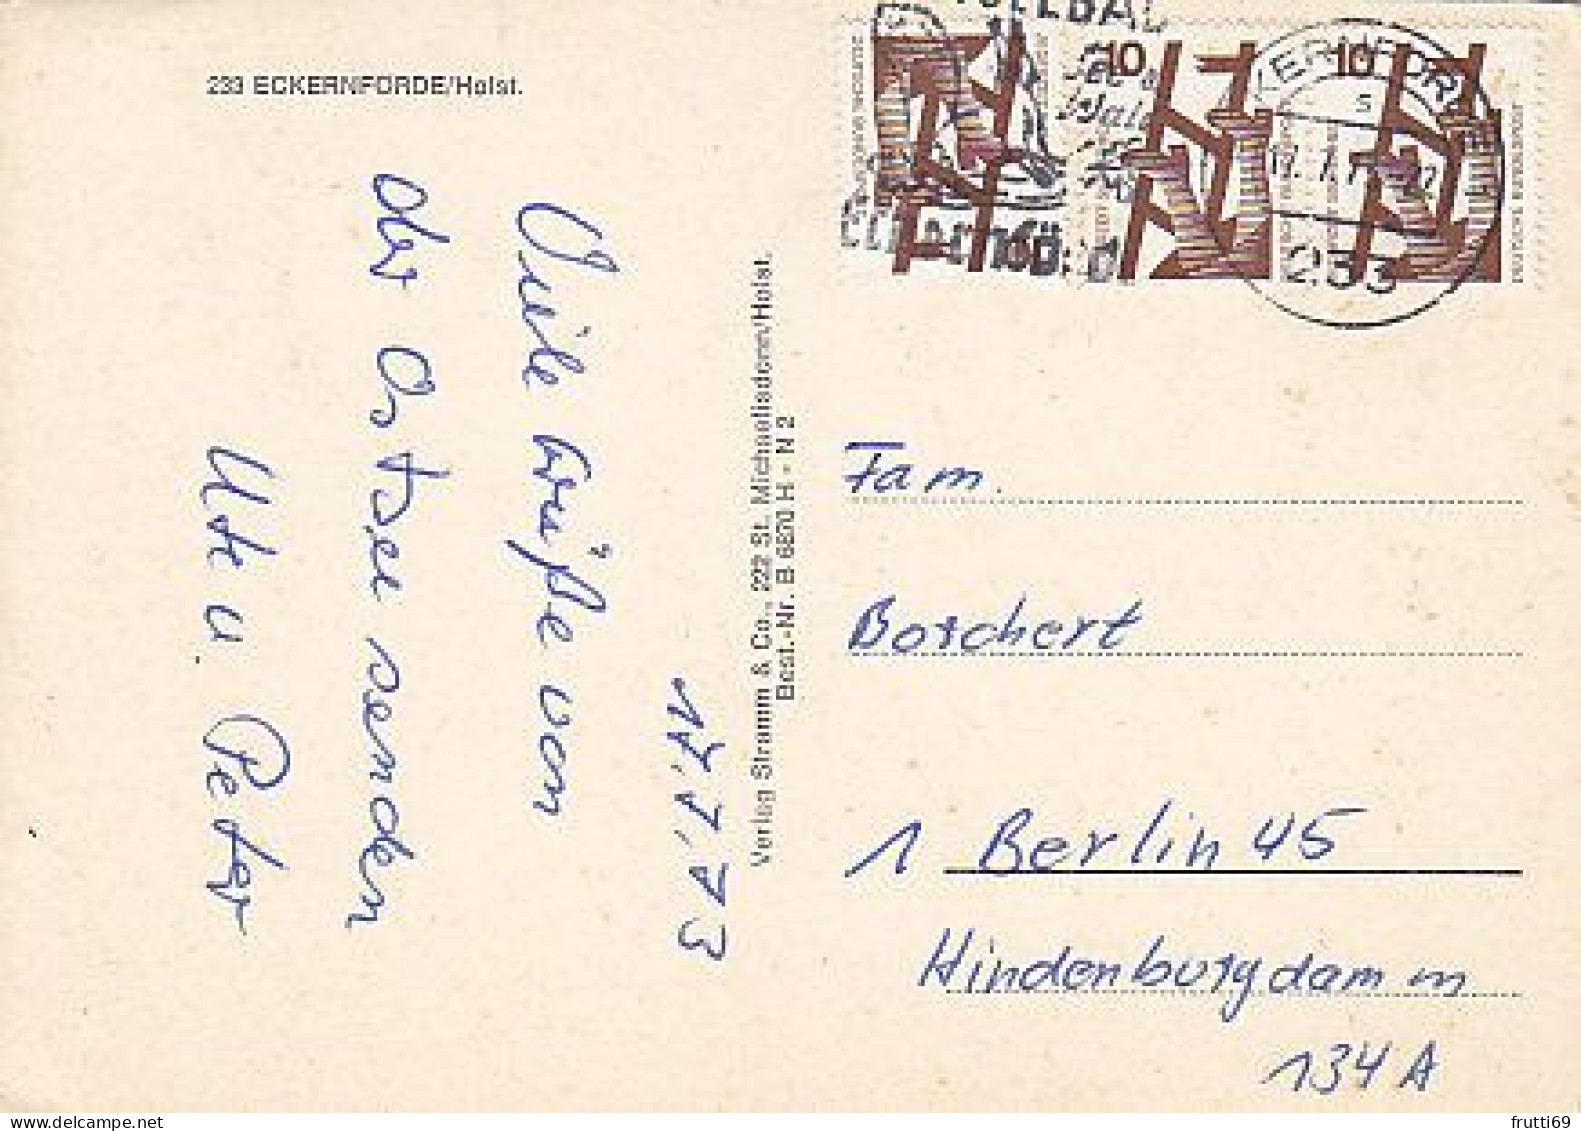 233 ECKERNFÖRDE/Holst.
Viele Grüße von
der Ostsee senden
Ute u Peter
17.7.73
Verlag Stramm & Co., 222 St. Michaelisdonn/Holst.
Best.-Nr. B 6870 H - N 2
10
10
DEUTSCHE BUNDESPOST
233
Fam.
Borchert
1 Berlin 45
Hindenburgdamm
134 A
frutti69